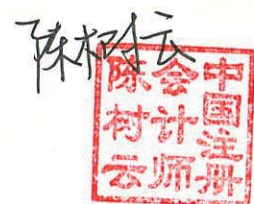 陈村云
中国注册
会计师
陈村云